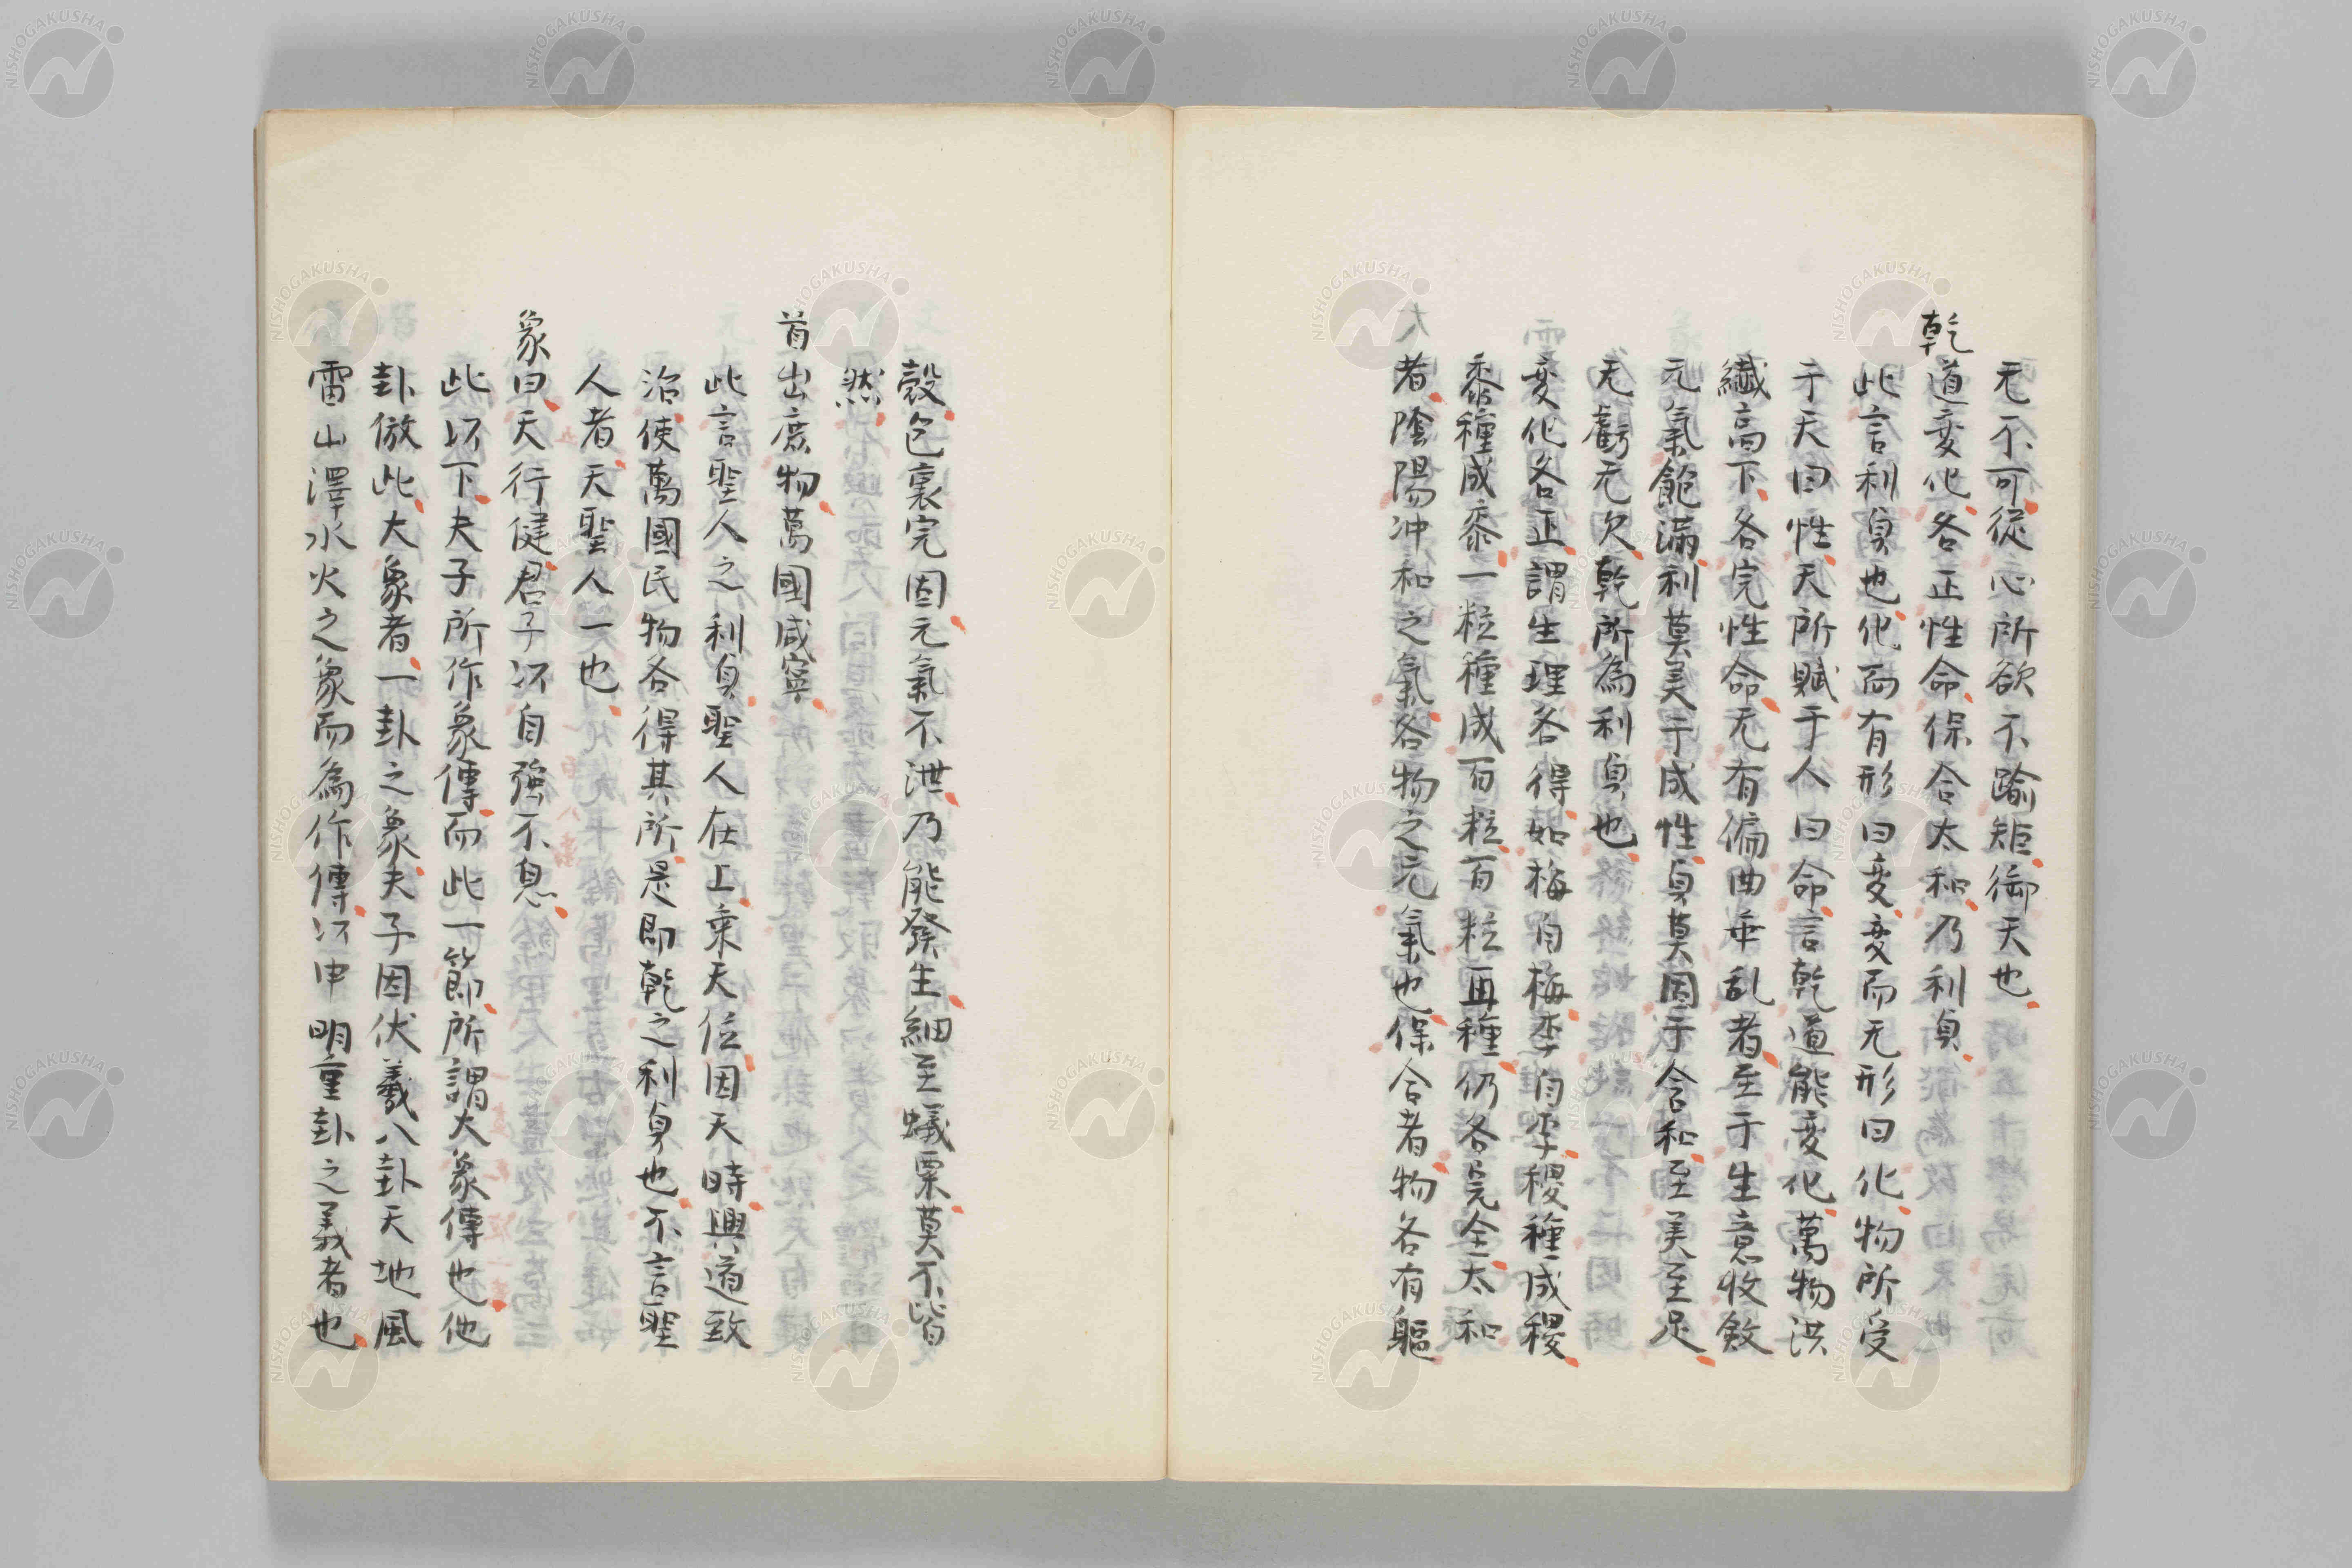 无不可從心所欲不踰矩御天也
乾道变化各正性命保合太和乃利貞
此言利貞也化而有形曰变变而无形曰化物所受
于天曰性天所賦于人曰命言乾道能变化萬物洪
纎高下各完性命无有偏曲乖乱者至于生意收斂
元氣飽滿利莫美于成性貞莫固于含和至美至足
无虧无欠乾所為利貞也
变化各正謂生理各得如梅自梅李自李稷種成稷
黍種成黍一粒種成百粒百粒再種仍各具元全太和
者陰陽冲和之氣各物之元氣也保合者物各有軀
殼包裹完固元氣不泄乃能發生細至蟻粟莫不皆
然
首出庶物萬國咸寧
此言聖人之利貞聖人在上乘天位因天時興道致
治使萬國民物各得其所是即乾之利貞也不言聖
人者天聖人一也
象曰天行健君子以自強不息
此以下夫子所作象傳而此一節所謂大象傳也他
卦倣此大象者一卦之象夫子因伏羲八卦天地風
雷山澤水火之象而為作傳以申明重卦之義者也
NISHOGAKUSHA